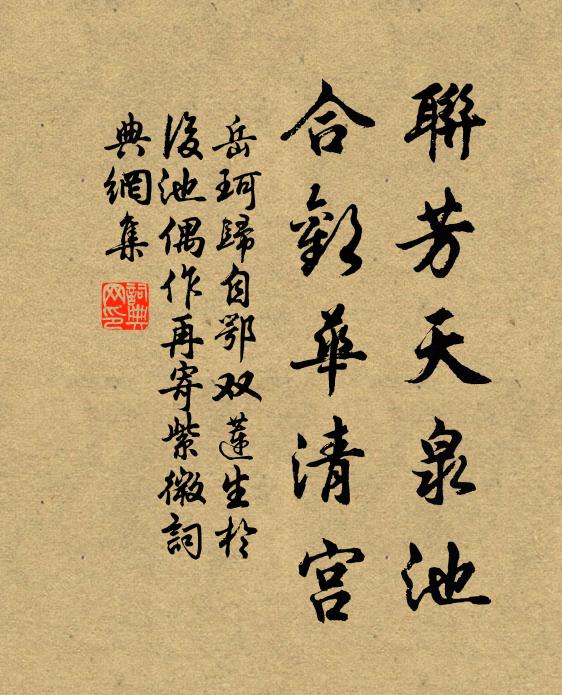 聯芳天泉池
合歡華清宮
岳珂歸自鄂双蓮生於
後池偶作再寄紫微詞
典網集
詞典網印